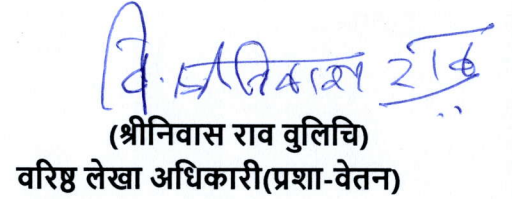 वि. श्रीनिवास राव
(श्रीनिवास राव वुलिचि)
वरिष्ठ लेखा अधिकारी(प्रशा-वेतन)